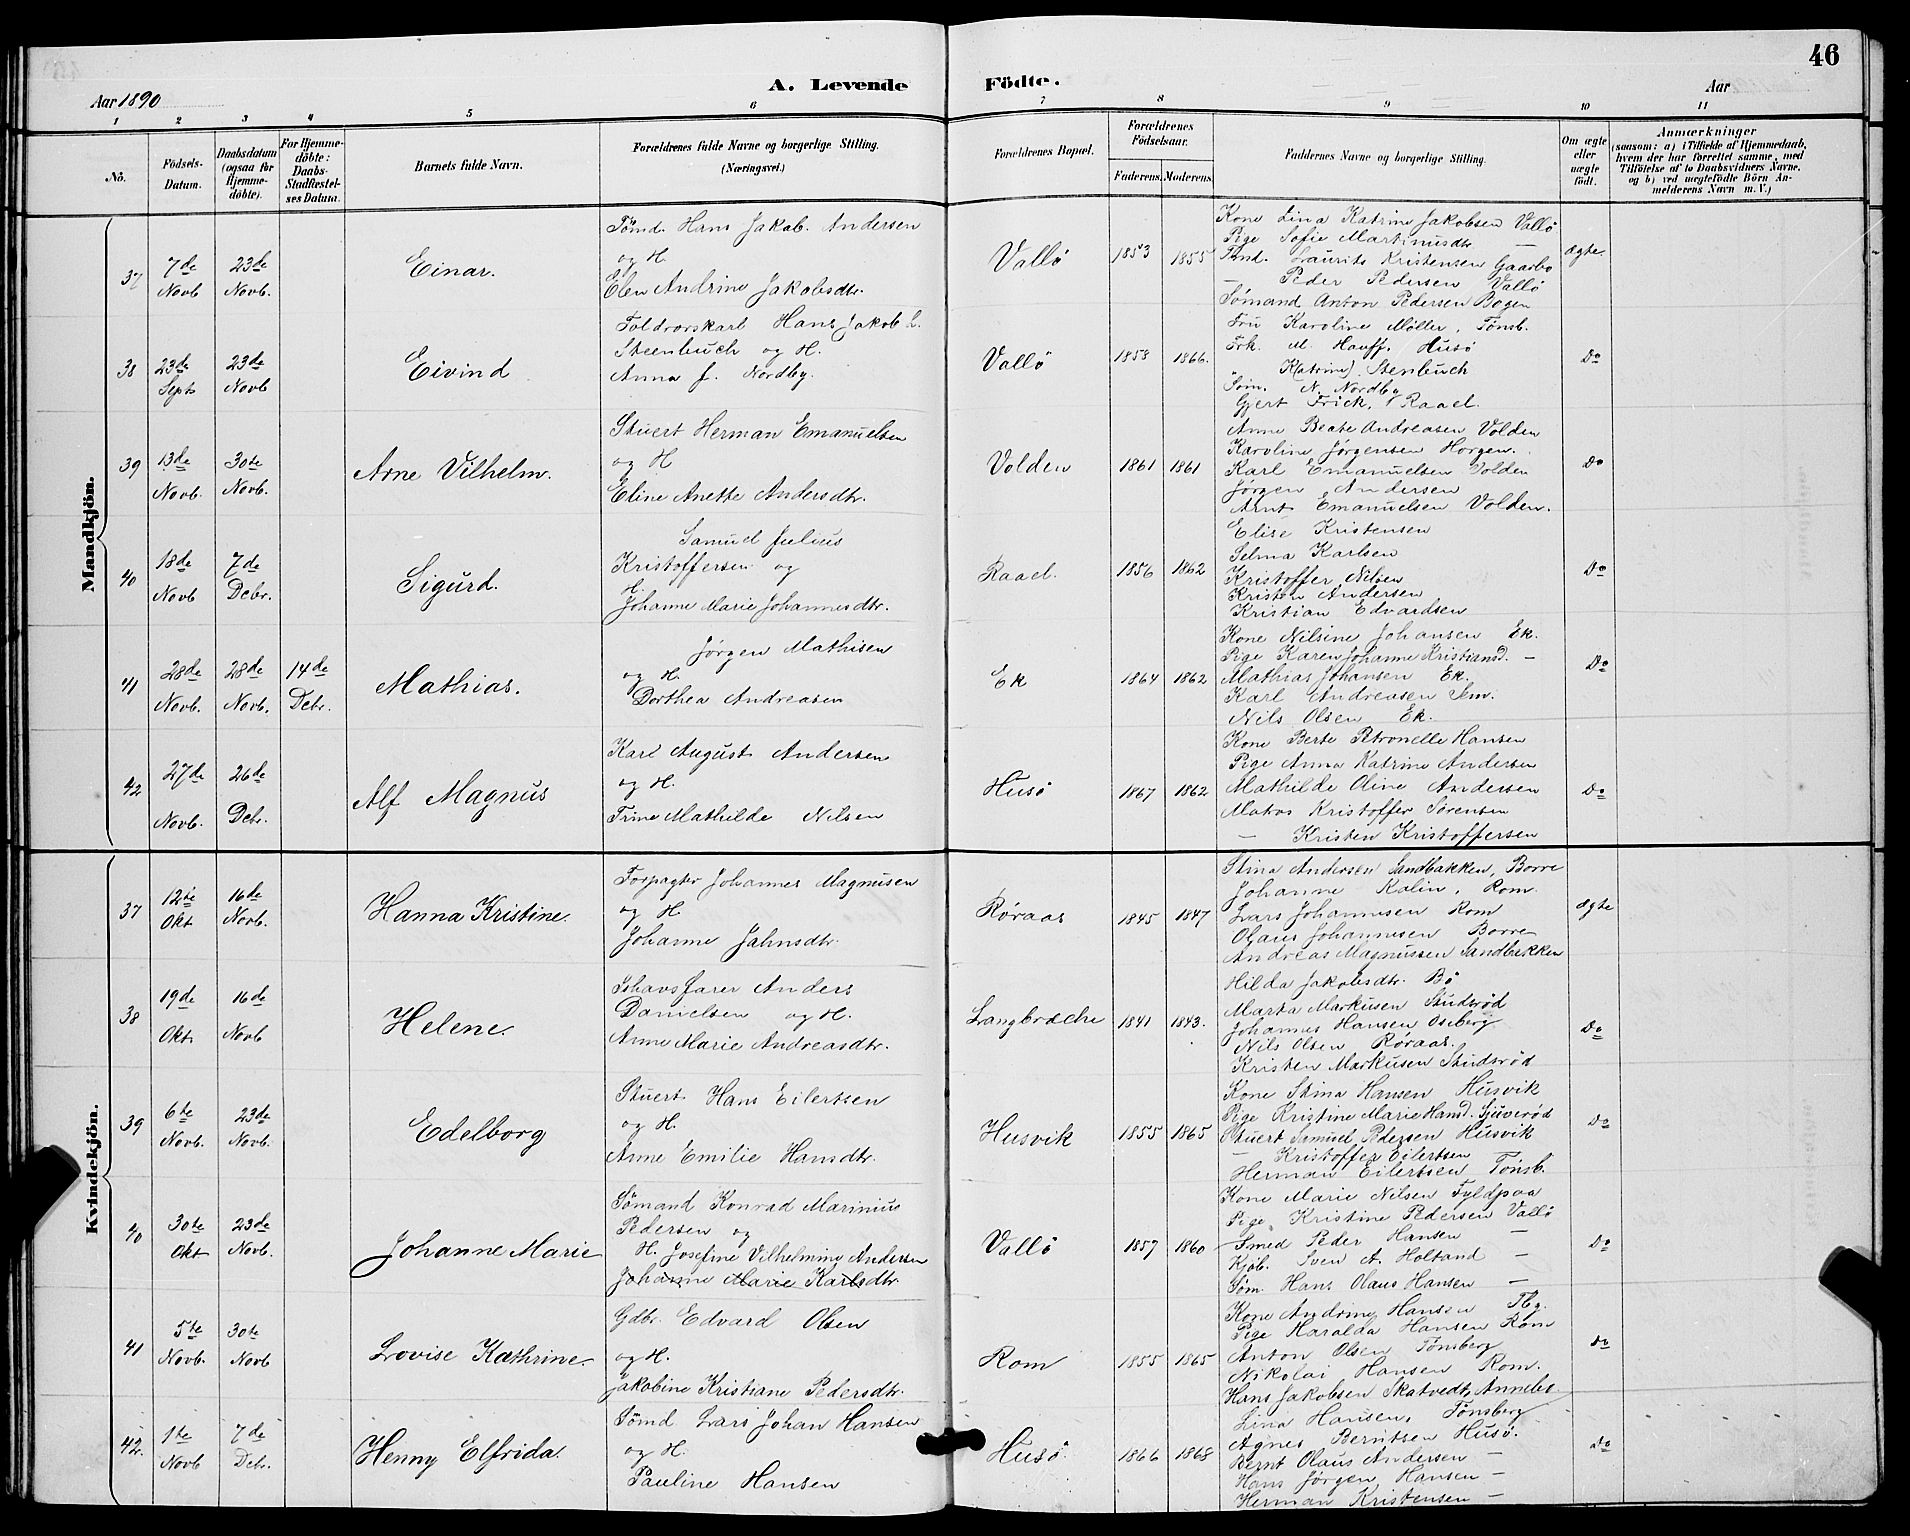 46
A. Levende Födte.
Aar 1890
Aar
1 2 3 4 5 6 7 8 9 10 11
No.
Födsels-Datum.
Daabsdatum (ogsaa för Hjemme-döbte).
For Hjemme-döbte: Daabs-Stadfæstel-ses Datum.
Barnets fulde Navn.
Forældrenes fulde Navne og borgerlige Stilling.
(Næringsvei.)
Forældrenes Bopæl.
Forældrenes Födselsaar.
Faderens. Moderens.
Faddernes Navne og borgerlige Stilling.
Om ægte eller uægte födt.
Anmærkninger
(saasom: a) i Tilfælde af Hjemmedaab, hvem der har forrettet samme, med Tilföielse af to Daabsvidners Navne, og b) ved uægtefödte Börn An-melderens Navn m. V.)
Mandkjön.
37
7de Novb
23de Novb.
Einar.
Tömd. Hans Jakob Andersen
og H.
Elen Andrine Jakobsdtr.
Vallö
1853
1855
Kone Lina Katrine Jakobsen Vallö
Pige Sofie Martinusdtr. —
Tmd. Laurits Kristensen Gaarbo
— Peder Pedersen Vallö
Sömand Anton Pedersen Bogen
ægte.
38
23de Sept
23de Novb
Eivind
Toldrorskarl Hans Jakob L.
Steenbuch og H.
Anna J. Nordby.
Vallö
1853
1866.
Fru Karoline Møller, Tönsb.
Frk. M. Hauff. Husö
K(atrine). Stenbuch
Söm. N. Nordby
Gjert Frick, Raael.
Do
39
13de Novb.
30te Novb.
Arne Vilhelm.
Stuert Herman Emanuelsen
og H
Eline Anette Andersdtr.
Volden
1861
1861
Anne Beate Andreasen Volden
Karoline Jørgensen Horgen.
Karl Emanuelsen Volden
Jørgen Andersen
Arnt Emanuelsen Volden.
Do
40
18de Novb
7de Debr.
Sigurd.
Samuel Julius
Kristoffersen og
H.
Johanne Marie Johannesdtr.
Raael.
1856
1862
Elise Kristensen
Selma Karlsen
Kristoffer Nilsen
Kristen Andersen
Kristian Edvardsen
Do
41
28de Novb.
28de Novb.
14de Debr.
Mathias.
Jørgen Mathisen
og H.
Dorthea Andreasen
Ek
1864
1862
Kone Nilsine Johansen Ek.
Pige Karen Johanne Kristiansd. —
Mathias Johansen Ek.
Karl Andreasen Sem.
Nils Olsen Ek.
Do
42
27de Novb.
26de Debr.
Alf Magnus
Karl August Andersen
og H.
Trine Mathilde Nilsen
Husö
1867
1862
Kone Berte Petronelle Hansen
Pige Anna Katrine Andersen
Mathilde Oline Andersen
Matros Kristoffer Sørensen
— Kristen Kristoffersen
Do
Kvindekjön.
37
12te Okt
16de Novb.
Hanna Kristine.
Forpagter Johannes Magnusen
og H
Johanne Jahnsdtr.
Røraas
1845
1847
Stina Andersen Sandbakken, Borre
Johanne Kalin, Rom.
Lars Johannesen Rom
Olaus Johannesen Borre
Andreas Magnussen Sandbakken
ægte
38
19de Okt
16de Novb
Helene.
Ishavsfarer Anders
Danielsen og H.
Anne Marie Andreasdtr.
Langbrække
1841
1843.
Hilda Jakobsdtr. Bö
Marta Markusen Studsröd
Johannes Hansen Oseberg
Nils Olsen Røraas.
Kristen Markusen Studsröd
Do
39
6te Novb.
23de Novb.
Edelborg
Stuert. Hans Eilertsen
og H.
Anne Emilie Hansdtr.
Husvik
1855
1865
Kone Stina Hansen Husvik
Pige Kristine Marie Hansd. Sjuveröd
Stuert Samuel Pedersen Husvik
— Kristoffer Eilertsen
Herman Eilertsen Tönsb.
Do
40
30te Okt
23de Novb.
Johanne Marie
Sömand Konrad Marinius
Pedersen og
H. Josefine Vilhelmine Andersen
Johanne Marie Karlsdtr.
Vallö
1857
1860
Kone Marie Nilsen Fyldpaa
Pige Kristine Pedersen Vallö
Smed Peder Hansen —
Kjöb. Sven A. Holtand —
Söm. Hans Olaus Hansen —
Do
41
5te Novb.
30te Novb
Lovise Kathrine
Gdbr. Edvard Olsen
og H.
Jakobine Kristiane Pedersdtr.
Rom
1855
1865
Kone Andrine Hansen Tbg.
Pige Haralda Hansen Rom
Anton Olsen Tönsberg
Nikolai Hansen Rom.
Hans Jakobsen Skatvedt, Annebo
Do
42.
1te Novb
7de Debr.
Henny Elfrida.
Sömd Lars Johan Hansen
og H.
Pauline Hansen
Husö
1866
1868
Lina Hansen, Tönsberg
Agnes Berntsen Husö.
Bernt Olaus Andersen —
Hans Jørgen Hansen —
Herman Kristensen —
Do